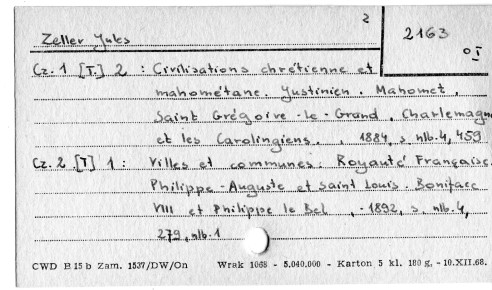 2
2163
Zeller Jules
o I
Cz. 1 [T.] 2 : Civilisations chrétienne et
mahométane. Justinien. Mahomet.
Saint Grégoire-le-Grand. Charlemagne
et les Carolingiens. , 1884, s. nlb. 4, 459
Cz. 2 [T] 1 : Villes et communes. Royauté Française.
Philippe-Auguste et saint Louis. Boniface
VIII et Philippe le Bel , -1892, s. nlb. 4,
279, nlb. 1
CWD B 15 b Zam. 1537/DW/On Wrak 1068 - 5.040.000 - Karton 5 kl. 180 g. - 10.XII.68.